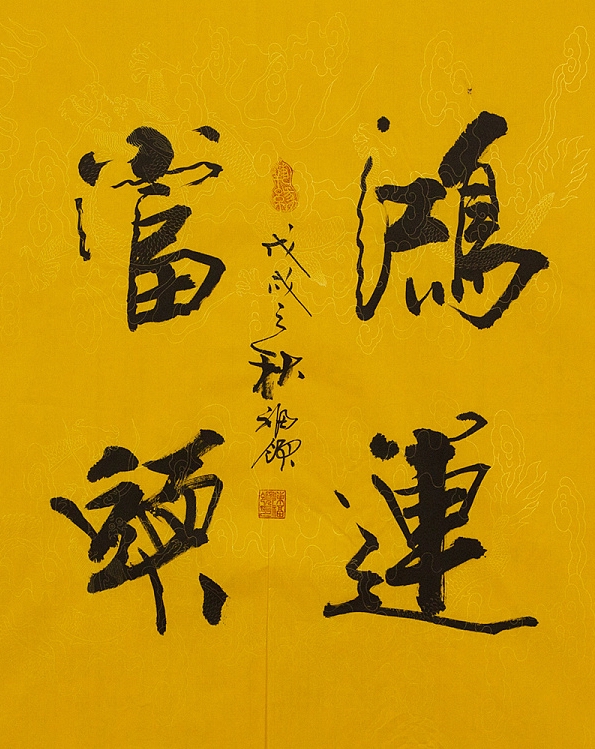 鴻運
當頭
戊戌之秋